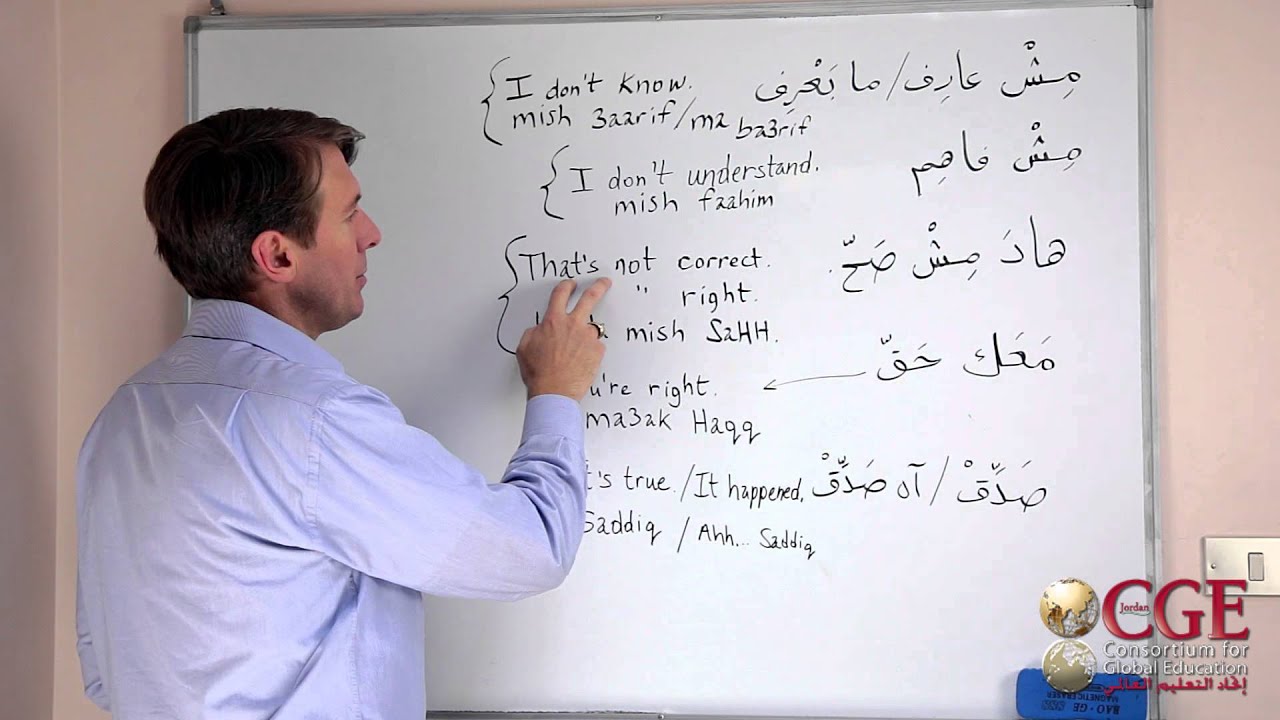 I don't know. مِشْ عارِف / ما بَعْرِف
mish 3aarif/ma ba3rif
I don't understand. مِشْ فاهِم
mish faahim
That's not correct. هادَ مِشْ صَحّ.
" right.
mish SaHH.
مَعَك حَقّ
're right.
ma3ak Haqq
's true. / It happened. صَدِّقْ / آه صَدِّقْ
Saddiq / Ahh... Saddiq
Jordan CGE
Consortium for
Global Education
إتحاد التعليم العالمي
BAO·GE 888
MAGNETIC ERASER